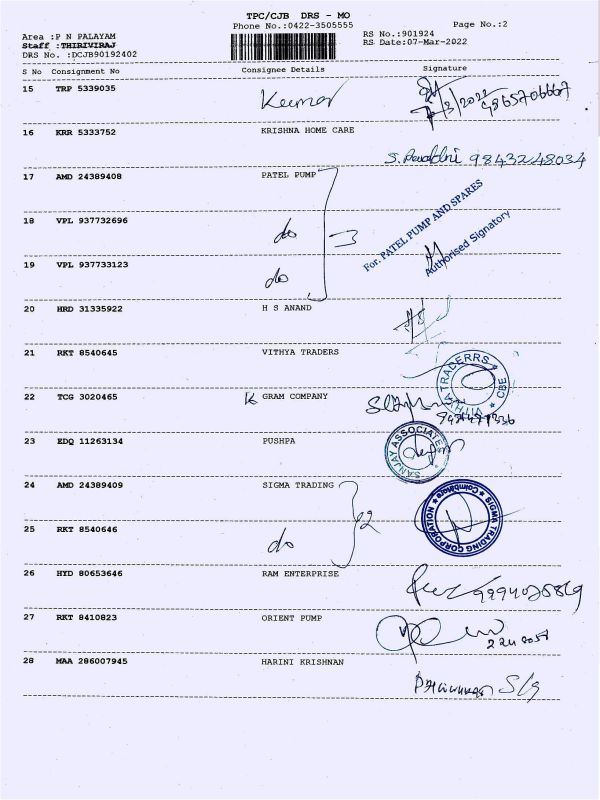 TPC/CJB DRS - MO
Phone No.:0422-3505555
Page No.:2
Area :P N PALAYAM
Staff :THIRIVIRAJ
DRS No. :DCJB90192402
RS No.:901924
RS Date:07-Mar-2022
S No Consignment No Consignee Details Signature
15 TRP 5339035 Kumar
16 KRR 5333752 KRISHNA HOME CARE
9843248034
17 AMD 24389408 PATEL PUMP
For. PATEL PUMP AND SPARES
Authorised Signatory
18 VPL 937732696 do 3
19 VPL 937733123 do
20 HRD 31335922 H S ANAND
21 RKT 8540645 VITHYA TRADERS
VITHYA TRADERRS CBE
22 TCG 3020465 GRAM COMPANY
23 EDQ 11263134 PUSHPA
SANJAY ASSOCIATE
24 AMD 24389409 SIGMA TRADING
SIGMA TRADING CORPORATION Coimbatore
25 RKT 8540646 do
26 HYD 80653646 RAM ENTERPRISE
27 RKT 8410823 ORIENT PUMP
28 MAA 286007945 HARINI KRISHNAN